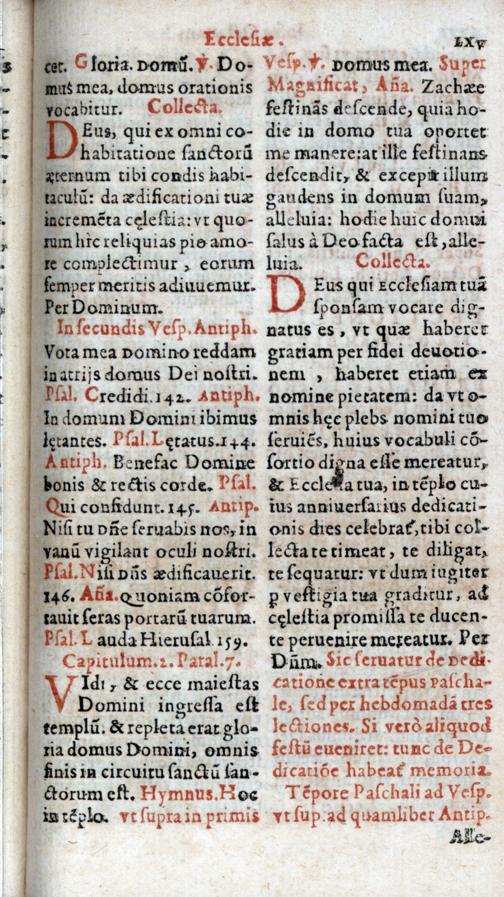 Ecclesiæ.
LXV
cet. Gloria. Domū. ℣. Do-
mus mea, domus orationis
vocabitur. Collecta.
DEus, qui ex omni co-
habitatione sanctorū
æternum tibi condis habi-
taculū: da ædificationi tuæ
incremēta cęlestia: vt quo-
rum hîc reliquias pio amo-
re complectimur, eorum
semper meritis adiuuemur.
Per Dominum.
In secundis Vesp. Antiph.
Vota mea Domino reddam
in atrijs domus Dei nostri.
Psal. Credidi. 142. Antiph.
In domum Domini ibimus
lętantes. Psal. Lętatus. 144.
Antiph. Benefac Domine
bonis & rectis corde. Psal.
Qui confidunt. 145. Antip.
Nisi tu Dñe seruabis nos, in
vanū vigilant oculi nostri.
Psal. Nisi Dñs ædificauerit.
146. Aña. quoniam cōfor-
tauit seras portarū tuarum.
Psal. Lauda Hierusal. 159.
Capitulum. 2. Paral. 7.
VIdi, & ecce maiestas
Domini ingressa est
templū. & repleta erat glo-
ria domus Domini, omnis
finis in circuitu sanctū san-
ctorum est. Hymnus. Hoc
in tēplo. vt supra in primis
Vesp. ℣. Domus mea. Super
Magnificat, Aña. Zachæe
festinās descende, quia ho-
die in domo tua oportet
me manere: at ille festinans
descendit, & excepit illum
gaudens in domum suam,
alleluia: hodie huic domui
salus à Deo facta est, alle-
luia. Collecta.
DEus qui Ecclesiam tuā
sponsam vocare dig-
natus es, vt quæ haberet
gratiam per fidei deuotio-
nem, haberet etiam ex
nomine pietatem: da vt o-
mnis hęc plebs nomini tuo
seruiēs, huius vocabuli cō-
sortio digna esse mereatur,
& Ecclesia tua, in tēplo cu-
ius anniuersarius dedicati-
onis dies celebrat́, tibi col-
lecta te timeat, te diligat,
te sequatur: vt dum iugiter
ꝑ vestigia tua graditur, ad
cęlestia promissa te ducen-
te peruenire mereatur. Per
Dñm. Sic seruatur de Dedi-
catione extra tēpus Pascha-
le, sed per hebdomadā tres
lectiones. Si verò aliquod
festū eueniret: tunc de De-
dicatiōe habeat́ memoria.
Tēpore Paschali ad Vesp.
vt sup. ad quamliber Antip.
Alle-